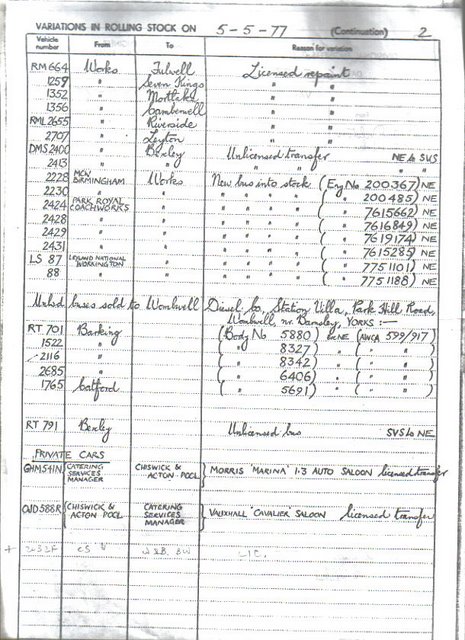 VARIATIONS IN ROLLING STOCK ON 5-5-77 (Continuation) 2
Vehicle number From To Reason for variation
RM 664 Works Fulwell Licensed repaint
1259 " Seven Kings " "
1352 " Mortlake " "
1356 " Camberwell " "
RML 2655 " Riverside " "
2707 " Leyton " "
DMS 2400 " Bexley Unlicensed transfer NE to SUS
2413 " " " "
2228 MCW BIRMINGHAM Works New bus into stock (Eng No 200367) NE
2230 " " " " " " ( " 200485) NE
2424 PARK ROYAL COACHWORKS " " " " " ( 7615662) NE
2428 " " " " " " ( 7616849) NE
2429 " " " " " " ( 7619174) NE
2431 " " " " " " ( 7615285) NE
LS 87 LEYLAND NATIONAL WORKINGTON " " " " " ( 7751101) NE
88 " " " " " ( 7751188) NE
Unlsd buses sold to Wombwell Diesel Co, Station Villa, Park Hill Road,
Wombwell, nr. Barnsley, YORKS :-
RT 701 Barking (Body No 5880) NE (AWCA 599/917)
1522 " ( " 8327) " ( " " )
2116 " ( " 8342) " ( " " )
2685 " ( " 6406) " ( " " )
1765 Catford ( " 5691) " ( " " )
RT 791 Bexley Unlicensed bus SUS to NE
PRIVATE CARS
GHM 541N CATERING SERVICES MANAGER CHISWICK & ACTON POOL } MORRIS 'MARINA' 1·3 AUTO SALOON licensed transfer
OJD 588R CHISWICK & ACTON POOL CATERING SERVICES MANAGER } VAUXHALL 'CAVALIER' SALOON licensed transfer